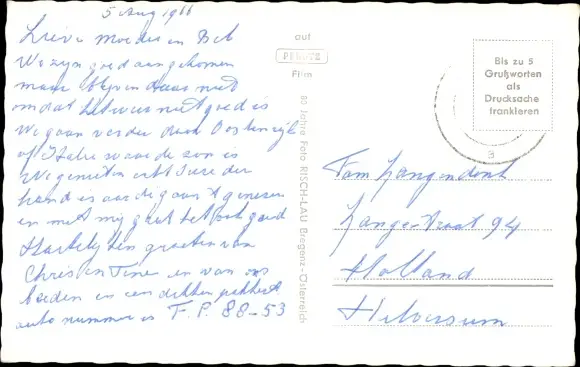 5 Aug 1966
Lieve Moeder en Bob
We zyn goed aangekomen
maar blyven daar niet
omdat het weer niet goed is
We gaan verder door Oostenryk
of Italie waar de zon is
We genieten echt Tiese der
hand is aardig aan t genezen
en met mij gaat het ook goed
Hartelyke groeten van
Chris en Tinie en van ons
beiden en een dikke pakkerd
auto nummer is F.P. 88-53
auf
PERUTZ
Film
80 Jahre Foto RISCH-LAU Bregenz-Österreich
Bis zu 5
Grußworten
als
Drucksache
frankieren
3
Fam Langendonk
Langestraat 94
Holland
Hilversum